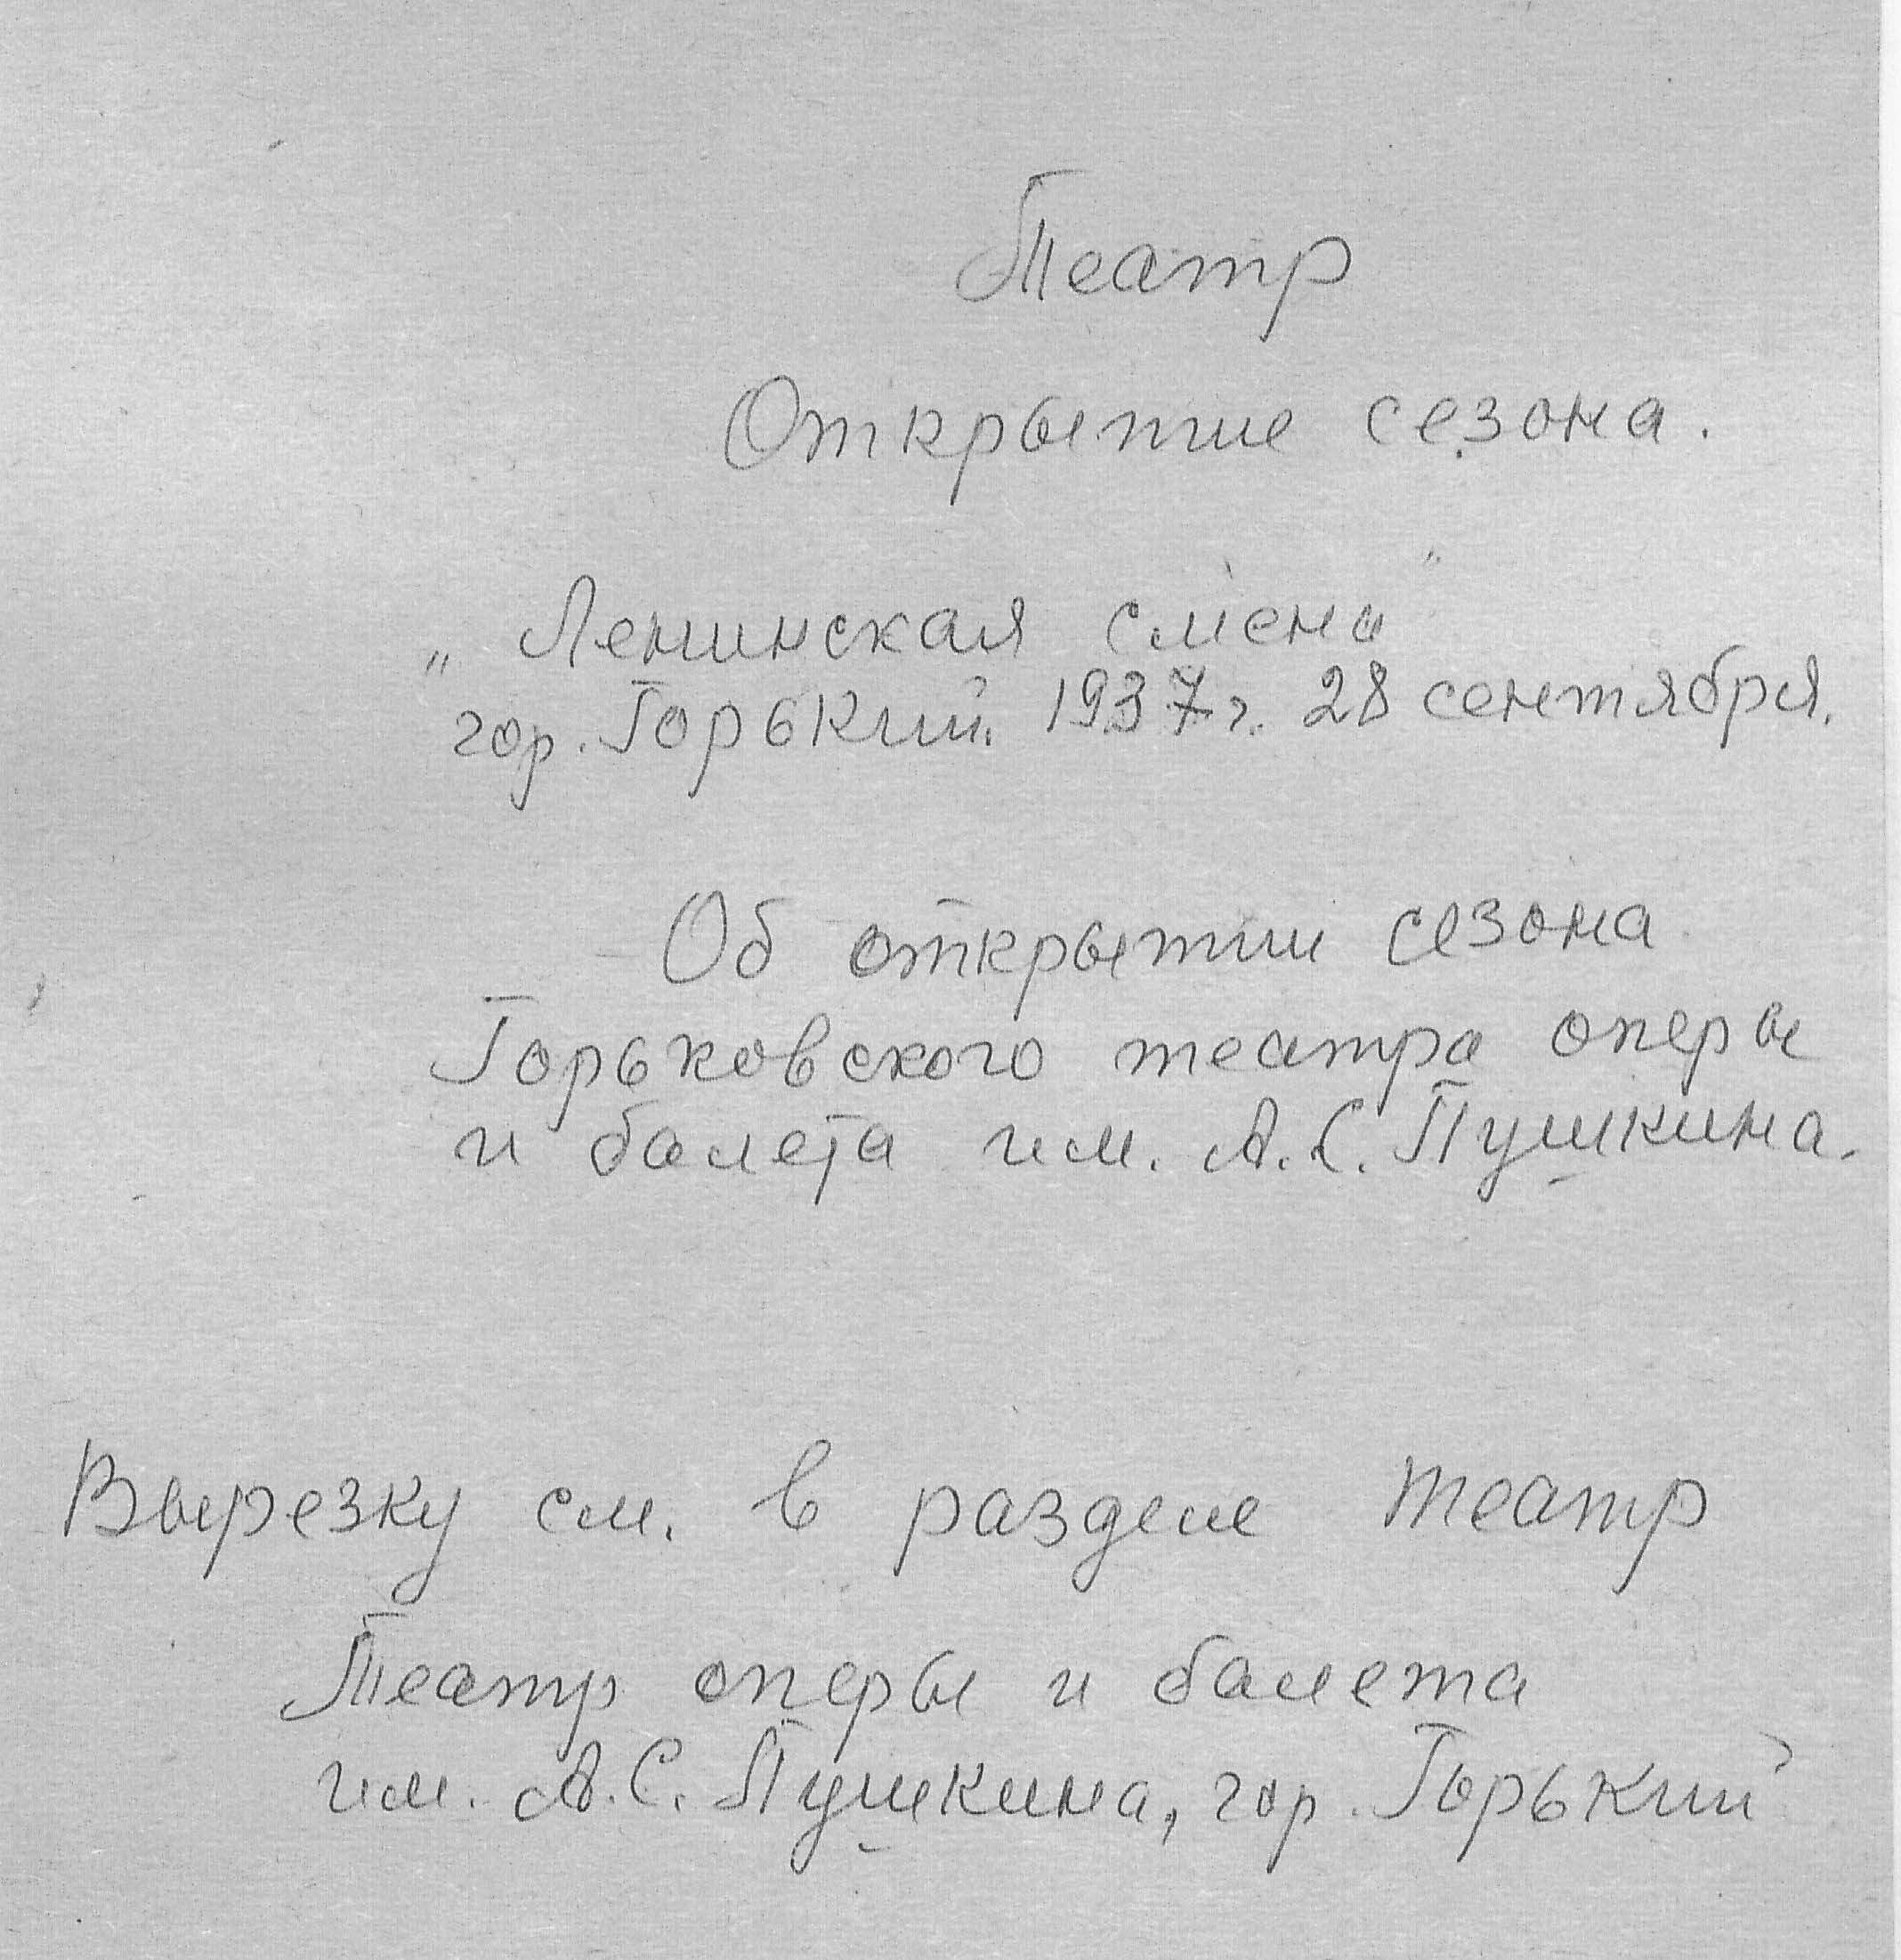 Театр
Открытие сезона.
„Ленинская смена"
гор. Горький. 1937 г. 28 сентября.
Об открытии сезона
Горьковского театра оперы
и балета им. А.С. Пушкина.
Вырезку см. в разделе театр
Театр оперы и балета
им. А.С. Пушкина, гор. Горький